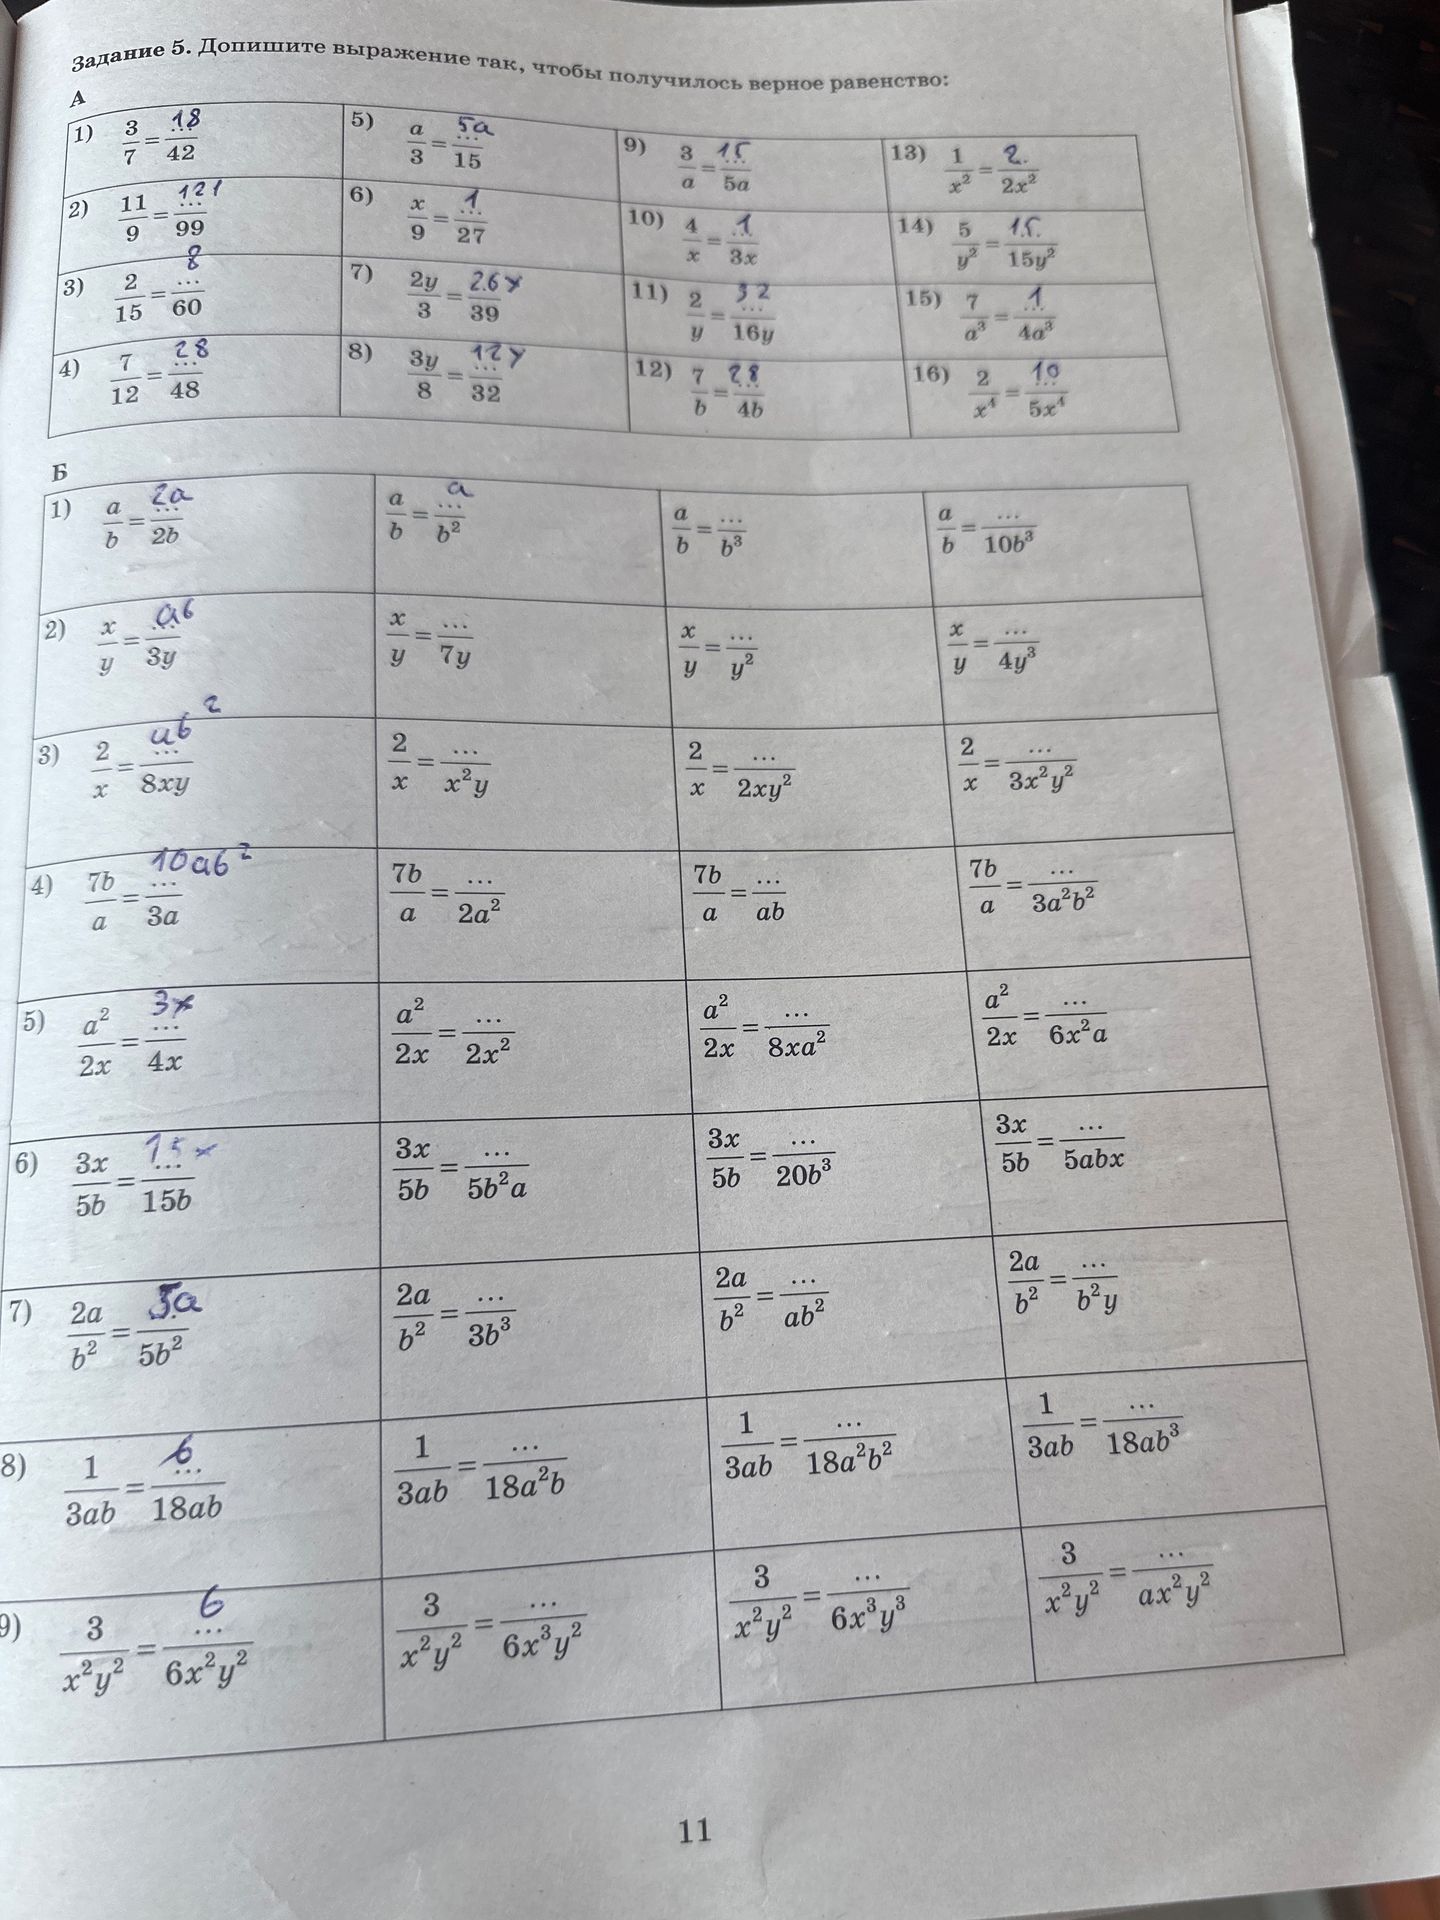 Задание 5. Допишите выражение так, чтобы получилось верное равенство:
А
1) 3/7 = 18.../42 5) a/3 = 5a.../15 9) 3/a = 15.../5a 13) 1/x² = 2.../2x²
2) 11/9 = 121.../99 6) x/9 = 1.../27 10) 4/x = 1.../3x 14) 5/y² = 15.../15y²
3) 2/15 = 8.../60 7) 2y/3 = 26y.../39 11) 2/y = 32.../16y 15) 7/a³ = 1.../4a³
4) 7/12 = 28.../48 8) 3y/8 = 12y.../32 12) 7/b = 28.../4b 16) 2/x⁴ = 10.../5x⁴
Б
1) a/b = 2a.../2b a/b = a.../b² a/b = .../b³ a/b = .../10b³
2) x/y = ab.../3y x/y = .../7y x/y = .../y² x/y = .../4y³
3) 2/x = ab².../8xy 2/x = .../x²y 2/x = .../2xy² 2/x = .../3x²y²
4) 7b/a = 10ab².../3a 7b/a = .../2a² 7b/a = .../ab 7b/a = .../3a²b²
5) a²/2x = 3x.../4x a²/2x = .../2x² a²/2x = .../8xa² a²/2x = .../6x²a
6) 3x/5b = 15x.../15b 3x/5b = .../5b²a 3x/5b = .../20b³ 3x/5b = .../5abx
7) 2a/b² = 5a.../5b² 2a/b² = .../3b³ 2a/b² = .../ab² 2a/b² = .../b²y
8) 1/3ab = 6.../18ab 1/3ab = .../18a²b 1/3ab = .../18a²b² 1/3ab = .../18ab³
9) 3/x²y² = 6.../6x²y² 3/x²y² = .../6x³y² 3/x²y² = .../6x³y³ 3/x²y² = .../ax²y²
11